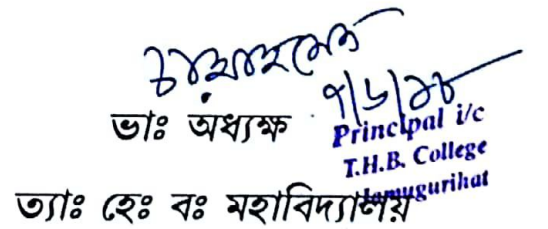 ৭/৬/১৮
ভাঃ অধ্যক্ষ
Principal i/c
T.H.B. College
Jamugurihat
ত্যাঃ হেঃ বঃ মহাবিদ্যালয়